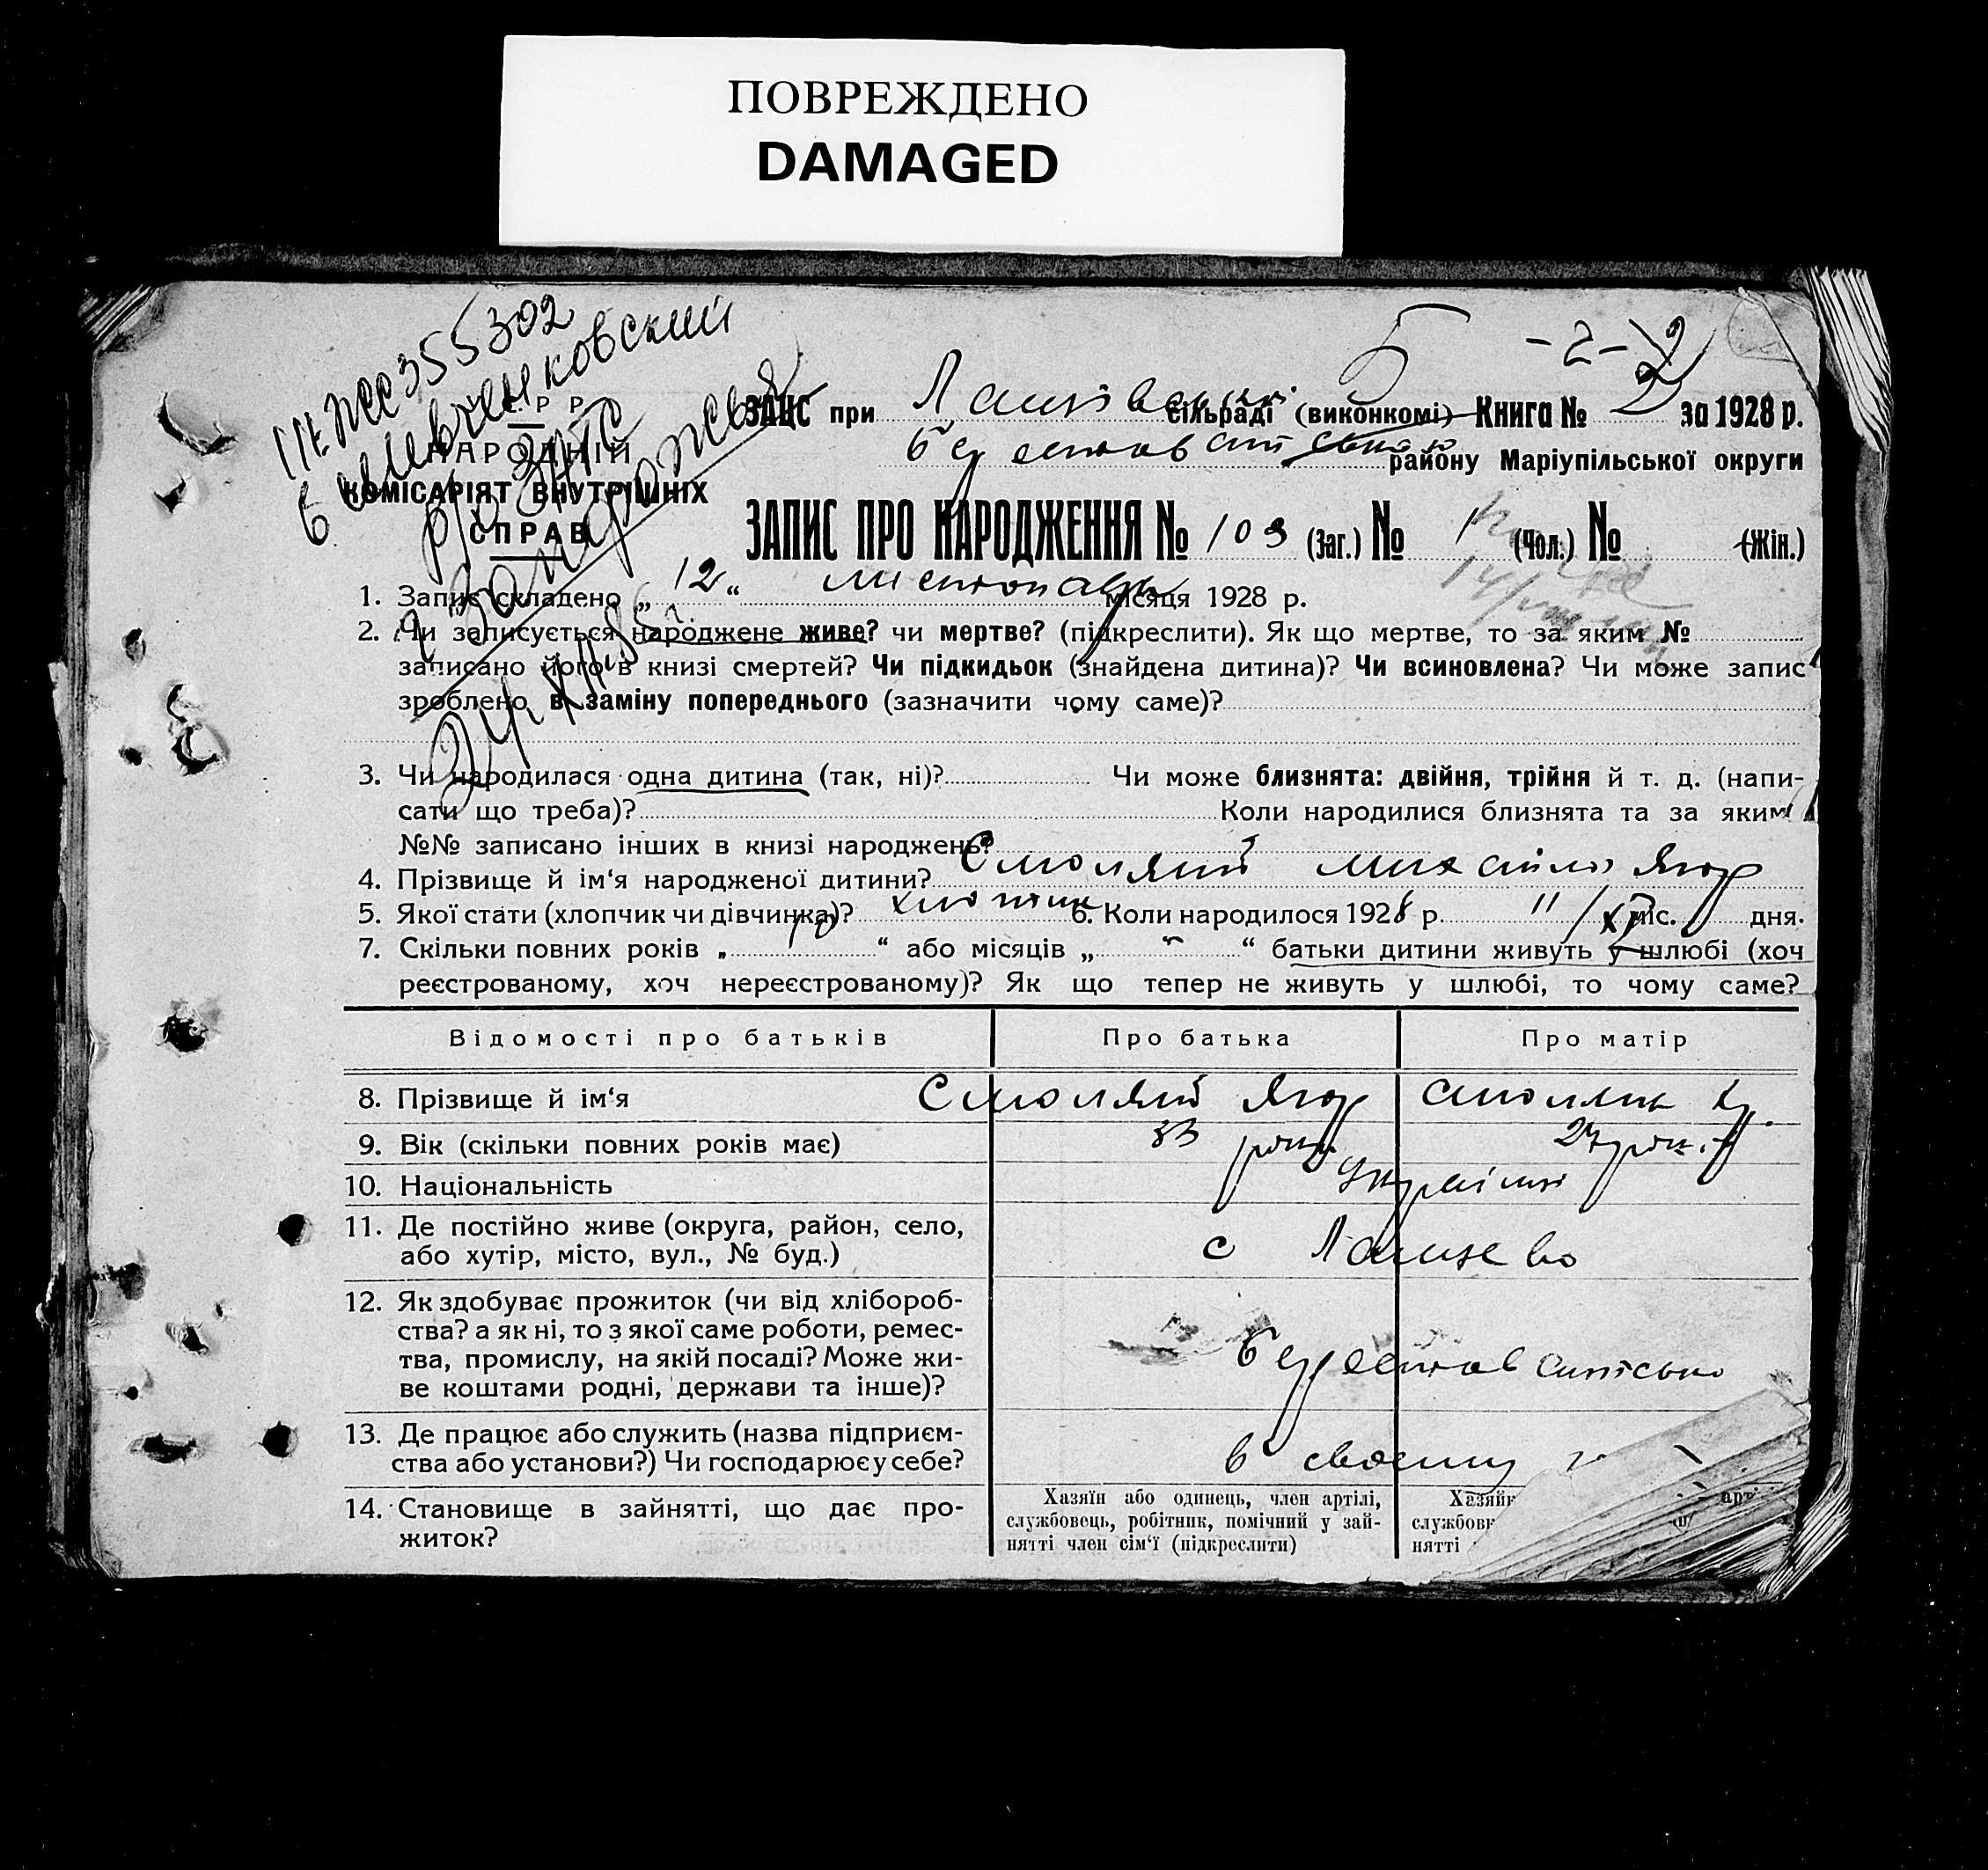 ПОВРЕЖДЕНО
DAMAGED
III ЖС 355302
в Шевченковский
р/о ЗАГС
г Запорожья
24/XII 85 г
С.Р.Р.
НАРОДНІЙ
КОМІСАРІЯТ ВНУТРІШНІХ
СПРАВ
Б -2-
ЗАЦС при сільраді (виконкомі) Книга № 2 за 1928 р.
району Маріупільської округи
ЗАПИС ПРО НАРОДЖЕННЯ № 103 (Заг.) № (Чол.) № (Жін.)
1. Запис складено „ 12 “ листопада місяця 1928 р.
2. Чи записується народжене живе? чи мертве? (підкреслити). Як що мертве, то за яким №
записано його в книзі смертей? Чи підкидьок (знайдена дитина)? Чи всиновлена? Чи може запис
зроблено в заміну попереднього (зазначити чому саме)?
3. Чи народилася одна дитина (так, ні)? Чи може близнята: двійня, трійня й т. д. (напи-
сати що треба)? Коли народилися близнята та за яким
№№ записано інших в книзі народжень?
4. Прізвище й ім‘я народженої дитини? Смоляний Михайло Ягор
5. Якої стати (хлопчик чи дівчинка)? хлопчик 6. Коли народилося 1928 р. 11/XI міс. дня.
7. Скільки повних років „ 10 “ або місяців „ - “ батьки дитини живуть у шлюбі (хоч
реєстрованому, хоч нереєстрованому)? Як що тепер не живуть у шлюбі, то чому саме?
Відомості про батьків Про батька Про матір
8. Прізвище й ім‘я Смоляний Ягор
9. Вік (скільки повних років має) 33 роки 27 років
10. Національність Українці
11. Де постійно живе (округа, район, село,
або хутір, місто, вул., № буд.) с
12. Як здобуває прожиток (чи від хлібороб-
ства? а як ні, то з якої саме роботи, ремес-
тва, промислу, на якій посаді? Може жи-
ве коштами родні, держави та інше)?
13. Де працює або служить (назва підприєм-
ства або установи?) Чи господарює у себе? в своєму
14. Становище в зайнятті, що дає про-
житок?
Хазяїн або одинець, член артілі,
службовець, робітник, помічний у зай-
нятті член сім‘ї (підкреслити)
Хазяїн арт
службов
нятті